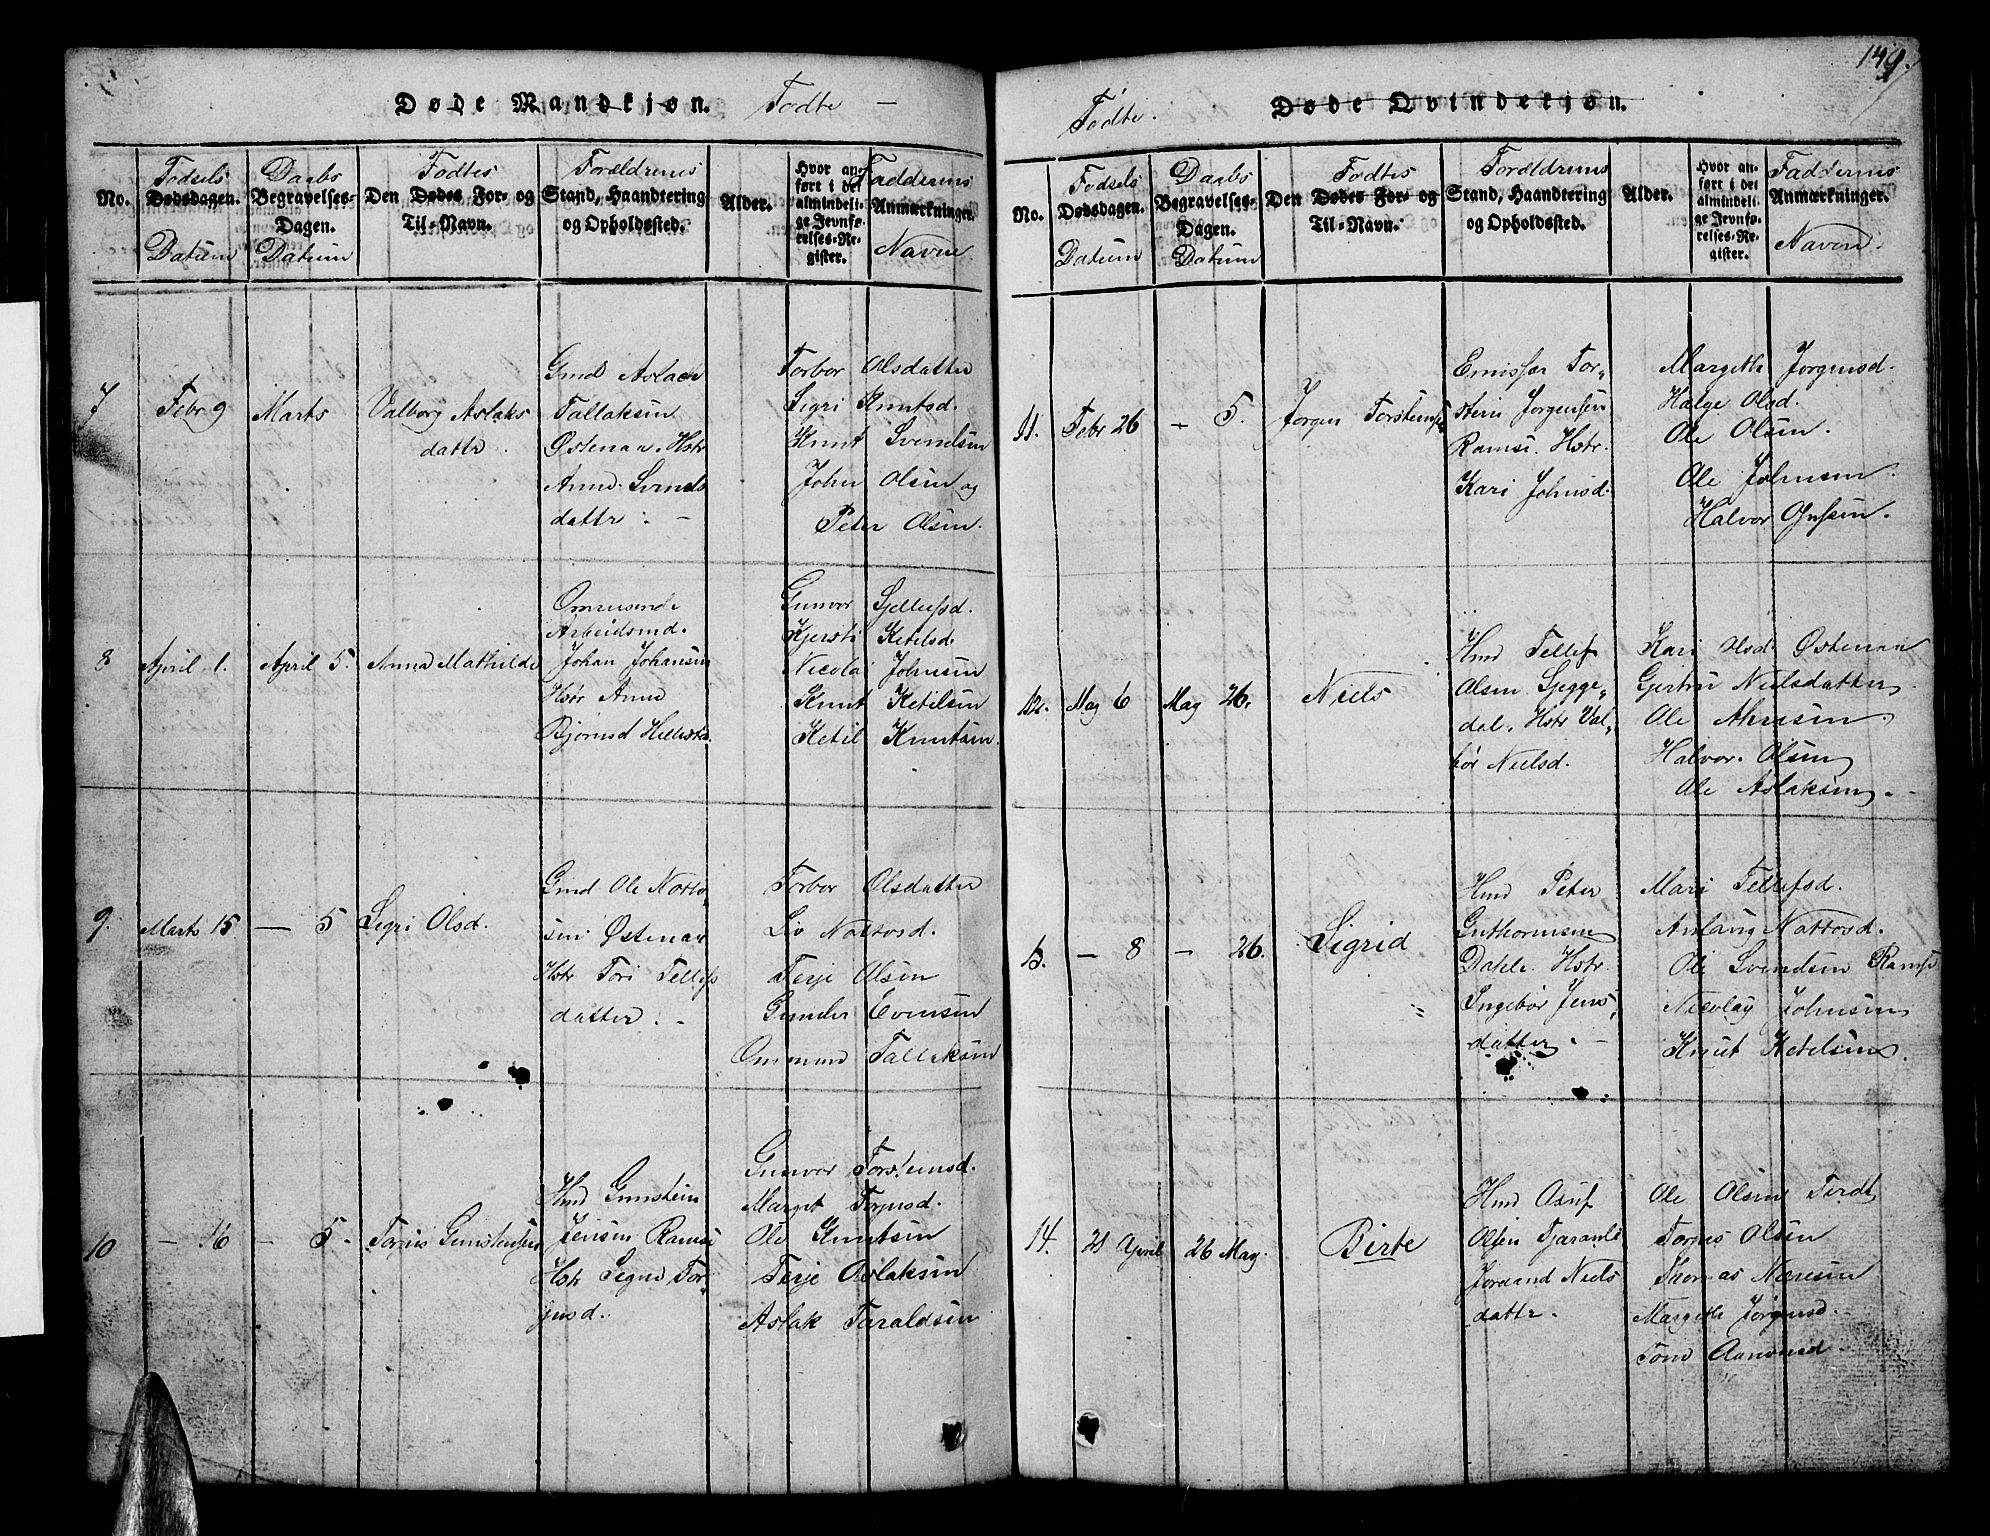 Døde Mandkjøn. Fødte
No.
Fødsels
Dødsdagen.
Datum
Daabs
Begravelses-
Dagen.
Datum
Fødtes
Den Dødes For- og
Til-Navn.
Forældrenes
Stand, Haandtering
og Opholdssted.
Alder.
Hvor an-
ført i det
almindeli-
ge Jevnfø-
relses-Re-
gister.
Faddernes
Anmærkninger.
Navne.
7
Febr 9
Marts
Valborg Aslaks
datter.
Gmd Aslack
Tallaksen
Østenaa. Hstr
Anne Svends
datter
Torbor Olsdatter
Sigri Knutsd.
Knut Svendsen
John Olsen og
Peter Olsen.
8
April 1.
April 5.
Anna Mathilde
Omreisende
Arbeidsmd.
Johan Johansen
Hstr Anne
Bjørnsd
Gunvor
Kjersti Ketilsd.
Nicolai Johnsen
Knut Ketilsen
Ketil Knutsen.
9.
Marts 15
— 5
Sigri Olsd.
Gmd Ole
sen Østenaa
Hstr Tori Tellefs
datter.
Torbor Olsdatter
Liv
Terje Olsen
Gunder Evensen
Ommund Tallaksen
10
— 16
— 5.
Hmd Gunstein
Jensen Ramse
Hstr Signe Tor
jusd.
Gunvor Torsteinsd.
Marget Torjusd.
Ole Knutsen
Terje Aslaksen
Aslak Taraldsen
149.
Fødte. Døde Qvindekjøn.
No.
Fødsels
Dødsdagen.
Datum
Daabs
Begravelses-
Dagen.
Datum
Fødtes
Den Dødes For- og
Til-Navn.
Forældrenes
Stand, Haandtering
og Opholdssted.
Alder.
Hvor an-
ført i det
almindeli-
ge Jevnfø-
relses-Re-
gister.
Faddernes
Anmærkninger.
Navne.
11.
Febr 26
— 5.
Jørgen Torsteinsen
Tor-
stein Jørgensen
Ramse. Hstr.
Kari Johnsd.
Margethe Jørgensd.
Helge Olsd.
Ole Olsen.
Ole Johnsen
Halvor
12.
May 6
May 26.
Niels
Hmd Tellef
Olsen Sjegge-
dal. Hstr Val-
bør Nielsd.
Kari Olsd Østenaa
Gjertru Nielsdatter
Ole
Halvor. Olsen
Ole Aslaksen.
13.
— 8
— 26.
Sigrid
Hmd Peter
Guthormsen
Dahle. Hstr
Ingebør Jens-
datter.
Mari Tellefsd.
Anlaug
Ole Svendsen Ramse
Nicolay Johnsen
Knut Ketelsen.
14.
21 April
26 May.
Birte
Hmd Osuf
Olsen
Joraand Niels
datter.
Ole Olsen
Torjus Olsen
Thomas
Margethe Jørgensd.
Tone Aanonsd.